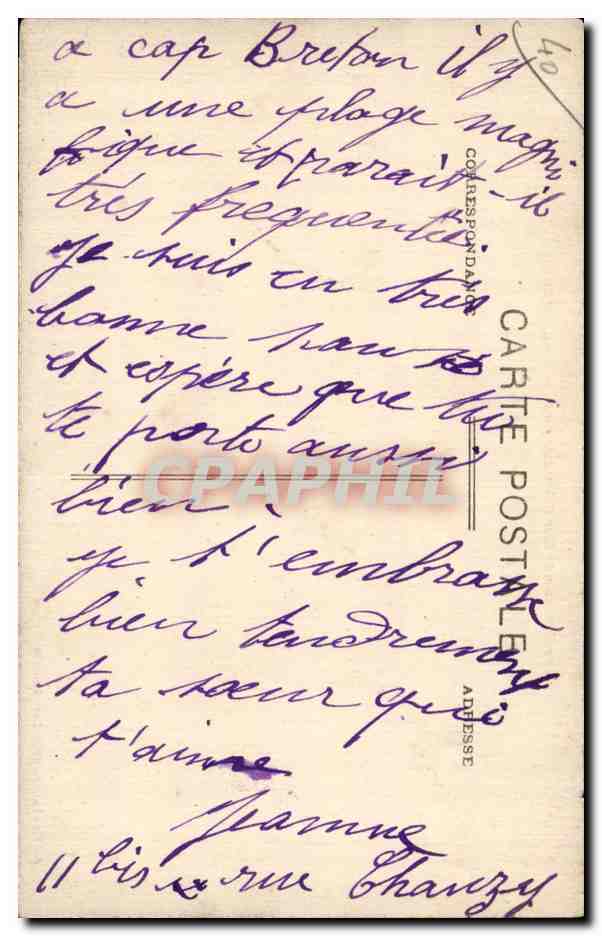 40
a cap Breton il y
a une plage magni
fique et parait-il
très frequentée.
Je suis en très
bonne santé
et espère que tu
te porte aussi
bien.
je t'embrasse
bien tendrement
ta sœur qui
t'aime
Jeanne
11 bis rue Chanzy
CORRESPONDANCE
CARTE POSTALE
ADRESSE
CPAPHIL